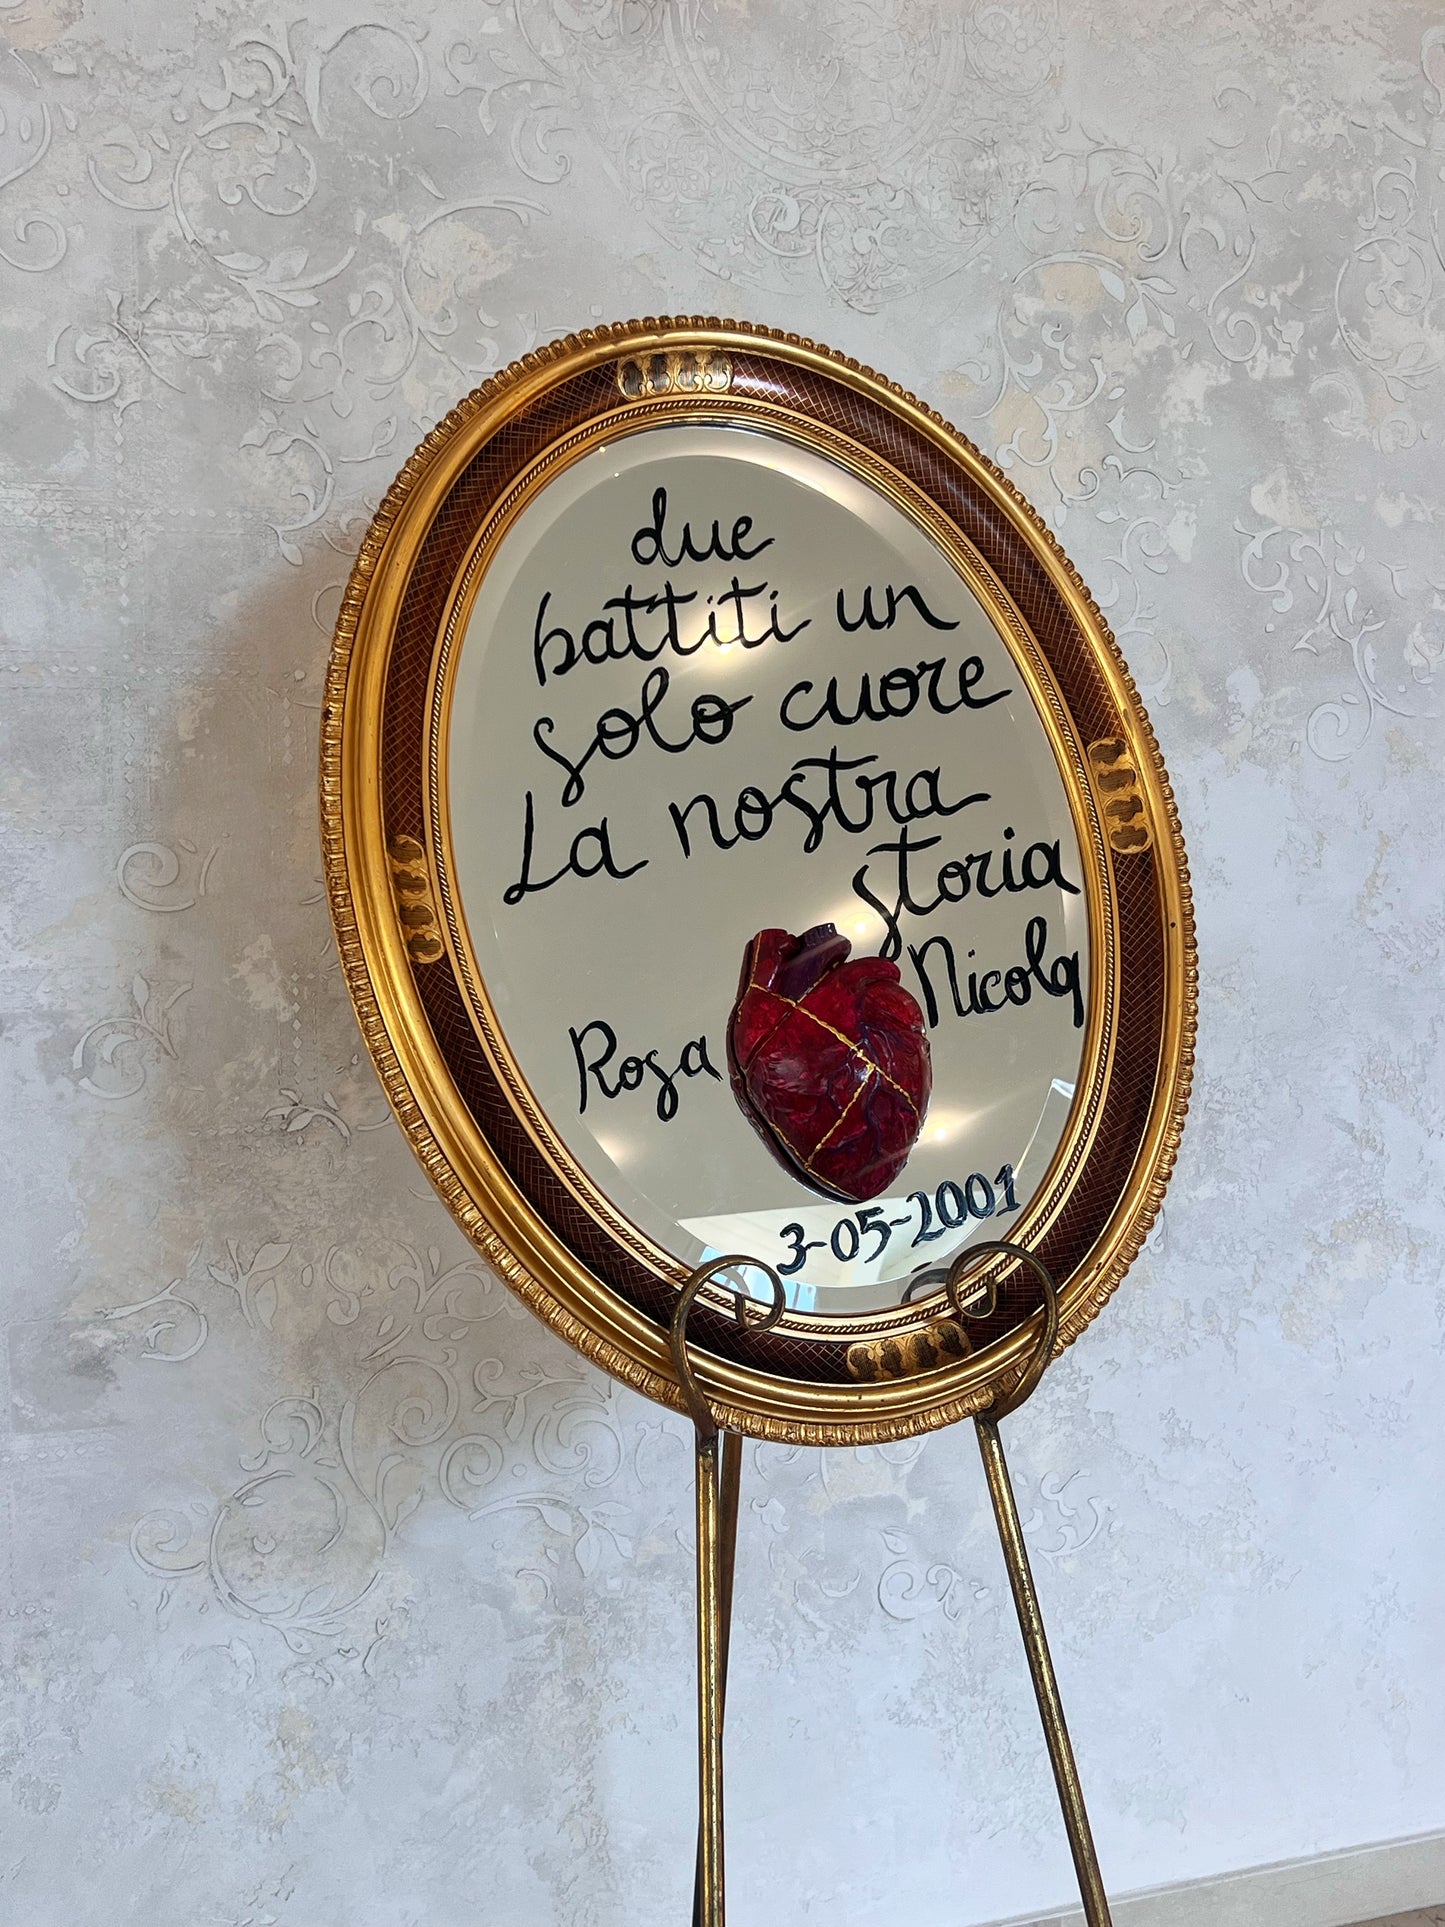 due
battiti un
solo cuore
La nostra
storia
Nicola
Rosa
3-05-2001